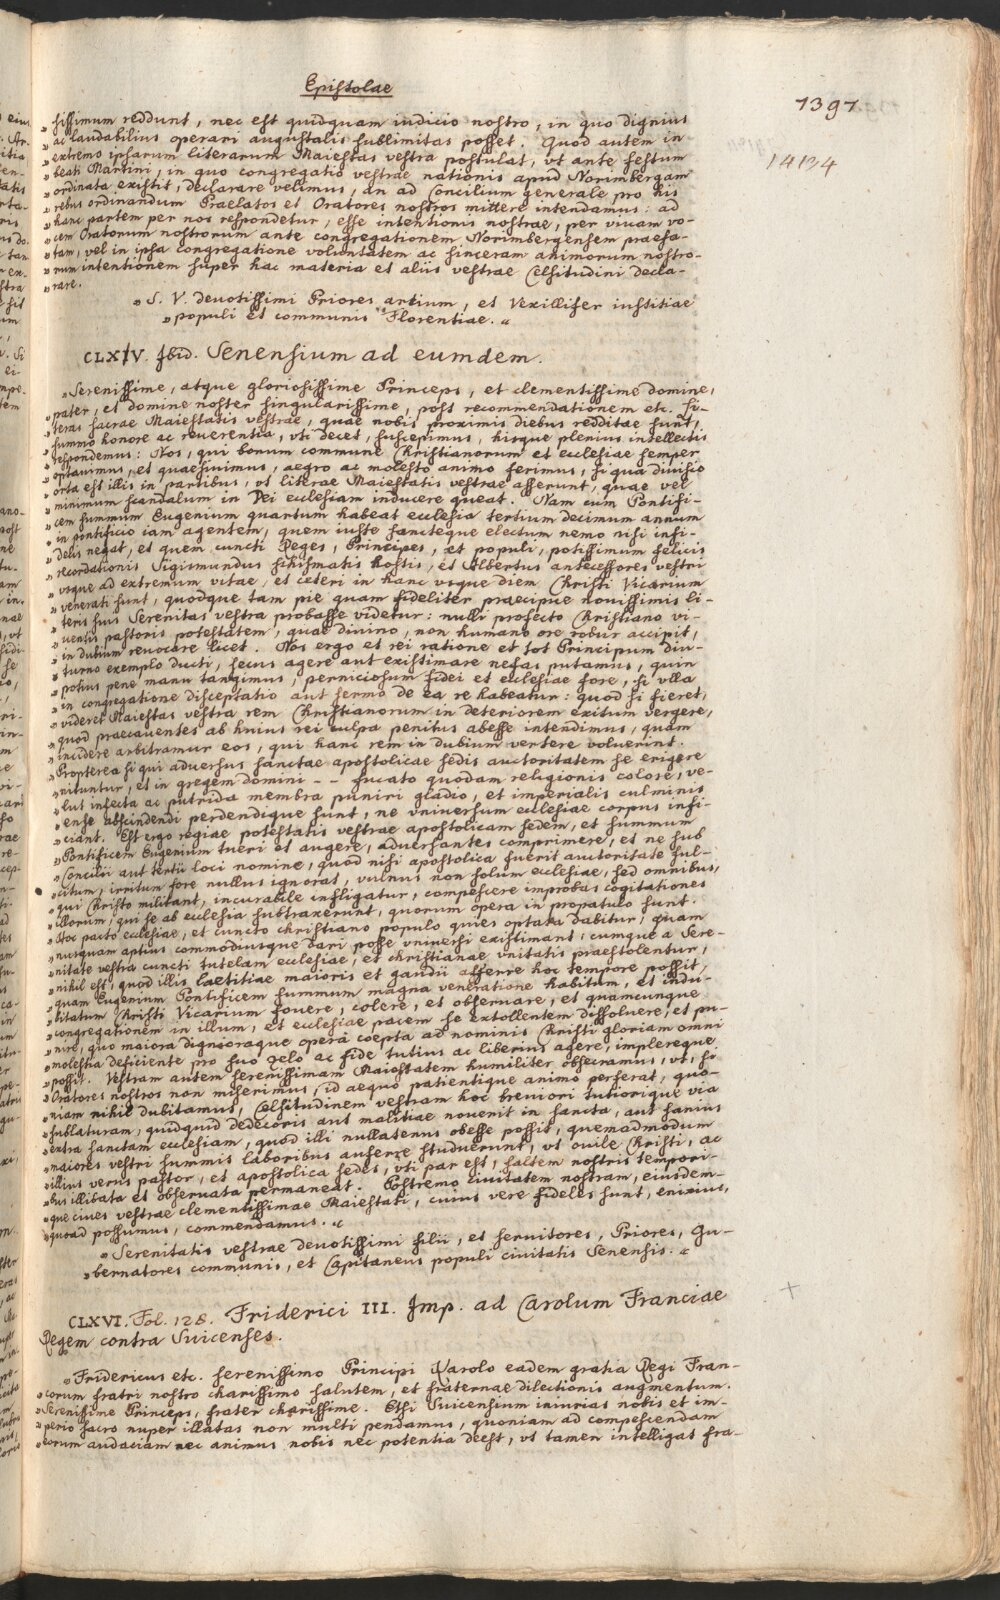 Epistolae
1397
14134
„sissimum reddunt, nec est quidquam iudicio nostro, in quo dignius
„ac laudabilius operari augustalis sublimitas posset. Quod autem in
„extremo ipsarum literarum Maiestas vestra postulat, vt ante festum
„beati Martini, in quo congregatio vestrae nationis apud Norimbergam
„ordinata existit, declarare velimus, an ad Concilium generale pro his
„rebus ordinandum Praelatos et Oratores nostros mittere intendamus: ad
„hanc partem per nos respondetur, esse intentionis nostrae, per viuam vo-
„cem Oratorum nostrorum ante congregationem Norimbergensem praefa-
„tam, vel in ipsa congregatione voluntatem ac sinceram animorum nostro-
„rum intentionem super hac materia et aliis vestrae Celsitudini decla-
„rare.
„S. V. deuotissimi Priores artium, et Vexillifer iustitiae
„populi et communis Florentiae. „
CLXIV. Ibid. Senensium ad eumdem.
„Serenissime, atque gloriosissime Princeps, et clementissime domine,
„pater, et domine noster singularissime, post recommendationem etc. Li-
„teras sacrae Maiestatis vestrae, quae nobis proximis diebus redditae sunt,
„summo honore ac reuerentia, vti decet, suscepimus, hisque plenius intellectis
„respondemus: Nos, qui bonum commune Christianorum et ecclesiae semper
„optauimus, et quaesiuimus, aegro ac molesto animo ferimus, si qua diuisio
„orta est illis in partibus, vt literae Maiestatis vestrae asserunt, quae vel
„minimum scandalum in Dei ecclesiam inducere queat. Nam cum Pontifi-
„cem summum Eugenium quartum habeat ecclesia tertium decimum annum
„in pontificio iam agentem, quem iuste sancteque electum nemo nisi infi-
„delis negat, et quem cuncti Reges, Principes, et populi, potissimum felicis
„recordationis Sigismundus schismatis hostis, et Albertus antecessores vestri
„vsque ad extremum vitae, et ceteri in hanc vsque diem Christi Vicarium
„venerati sunt, quodque tam pie quam fideliter praecipue nouissimis li-
„teris suis Serenitas vestra probasse videtur: nulli profecto Christiano vi-
„uentis pastoris potestatem, quae diuino, non humano ore robur accipit,
„in dubium reuocare licet. Nos ergo et rei ratione et tot Principum diu-
„turno exemplo ducti, secus agere aut existimare nefas putamus, quin
„potius pene manu tangimus, perniciosum fidei et ecclesiae fore, si vlla
„in congregatione disceptatio aut sermo de ea re habeatur: quod si fieret,
„videret Maiestas vestra rem Christianorum in deteriorem exitum vergere,
„quod praecauentes ab huius rei culpa penitus abesse intendimus, quam
„incidere arbitramur eos, qui hanc rem in dubium vertere voluerint.
„Propterea si qui aduersus sanctae apostolicae sedis auctoritatem se erigere
„nituntur, et in gregem domini - - fucato quodam religionis colore, ve-
„lut infecta ac putrida membra puniri gladio, et imperialis culminis
„ense abscindendi perdendique sunt, ne vniuersum ecclesiae corpus infi-
„ciant. Est ergo regiae potestatis vestrae apostolicam sedem, et summum
„Pontificem Eugenium tueri et augere, aduersantes comprimere, et ne sub
„Concilii aut tertii loci nomine, quod nisi apostolica fuerit auctoritate sul-
„citum, irritum fore nullus ignorat, vulnus non solum ecclesiae, sed omnibus,
„qui Christo militant, incurabile infligatur, compescere improbas cogitationes
„illorum, qui se ab ecclesia subtraxerunt, quorum opera in propatulo sunt.
„Hoc pacto ecclesiae, et cuncto christiano populo quies optata dabitur, quam
„nusquam aptius commodiusque dari posse vniuersi existimant: cumque a Sere-
„nitate vestra cuncti tutelam ecclesiae, et christianae vnitatis praestolentur,
„nihil est, quod illis laetitiae maioris et gaudii afferre hoc tempore possit,
„quam Eugenium Pontificem summum magna veneratione habitum, et indu-
„bitatum Christi Vicarium fouere, colere, et obseruare, et quamcunque
„congregationem in illum, et ecclesiae pacem se extollentem dissoluere, et pu-
„nire, quo maiora dignioraque opera coepta ad nominis Christi gloriam omni
„molestia deficiente pro suo zelo ac fide tutius ac liberius agere, implereque
„possit. Vestram autem serenissimam Maiestatem humiliter obsecramus, vt, si
„Oratores nostros non miserimus, id aequo patientique animo perferat, quo-
„niam nihil dubitamus, Celsitudinem vestram hoc breuiori tutiorique via
„sublaturam, quidquid dedecoris aut malitiae nouerit in sancta, aut sanius
„extra sanctam ecclesiam, quod illi nullatenus obesse possit, quemadmodum
„maiores vestri summis laboribus auferre studuerunt, vt ouile Christi, ac
„illius verus pastor, et apostolica sedes, vti par est, saltem nostris tempori-
„bus illibata et obseruata permaneat. Postremo ciuitatem nostram, eiusdem-
„que ciues vestrae clementissimae Maiestati, cuius vere fideles sunt, enixius,
„quoad possumus, commendamus. „
„Serenitatis vestrae deuotissimi filii, et seruitores, Priores, Gu-
„bernatores communis, et Capitaneus populi ciuitatis Senensis. „
CLXVI. Fol. 128. Friderici III. Imp. ad Carolum Franciae
Regem contra Suicenses.
„Fridericus etc. serenissimo Principi Karolo eadem gratia Regi Fran-
„corum fratri nostro charissimo salutem, et fraternae dilectionis augmentum.
„Serenissime Princeps, frater charissime. Etsi Suicensium iniurias nobis et im-
„perio sacro nuper illatas non multi pendamus, quoniam ad compescendam
„eorum audaciam nec animus nobis nec potentia deest, vt tamen intelligat fra-